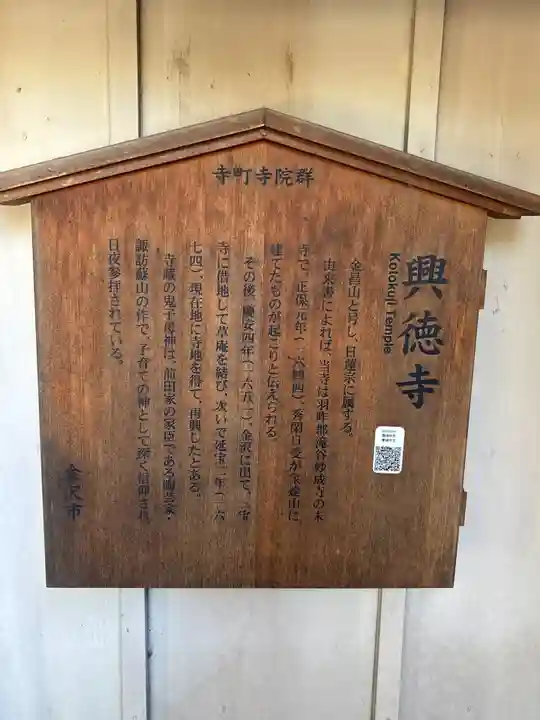 寺町寺院群
興徳寺
Kotokuji Temple
金昌山と号し、日蓮宗に属する。
由来書によれば、当寺は羽咋郡滝谷妙成寺の末
寺で、正保元年(一六四四)、
建てたものが起こりと伝えられる。
その後、慶安四年(一六五一)、金沢に出て、
寺に借地して草庵を結び、次いで延宝二年(一六
七四)、現在地に寺地を得て、再興したとある。
寺蔵の鬼子母神は、前田家の家臣である陶芸家・
諏訪蘇山の作で、子育ての神として深く信仰され
日夜参拝されている。
金沢市